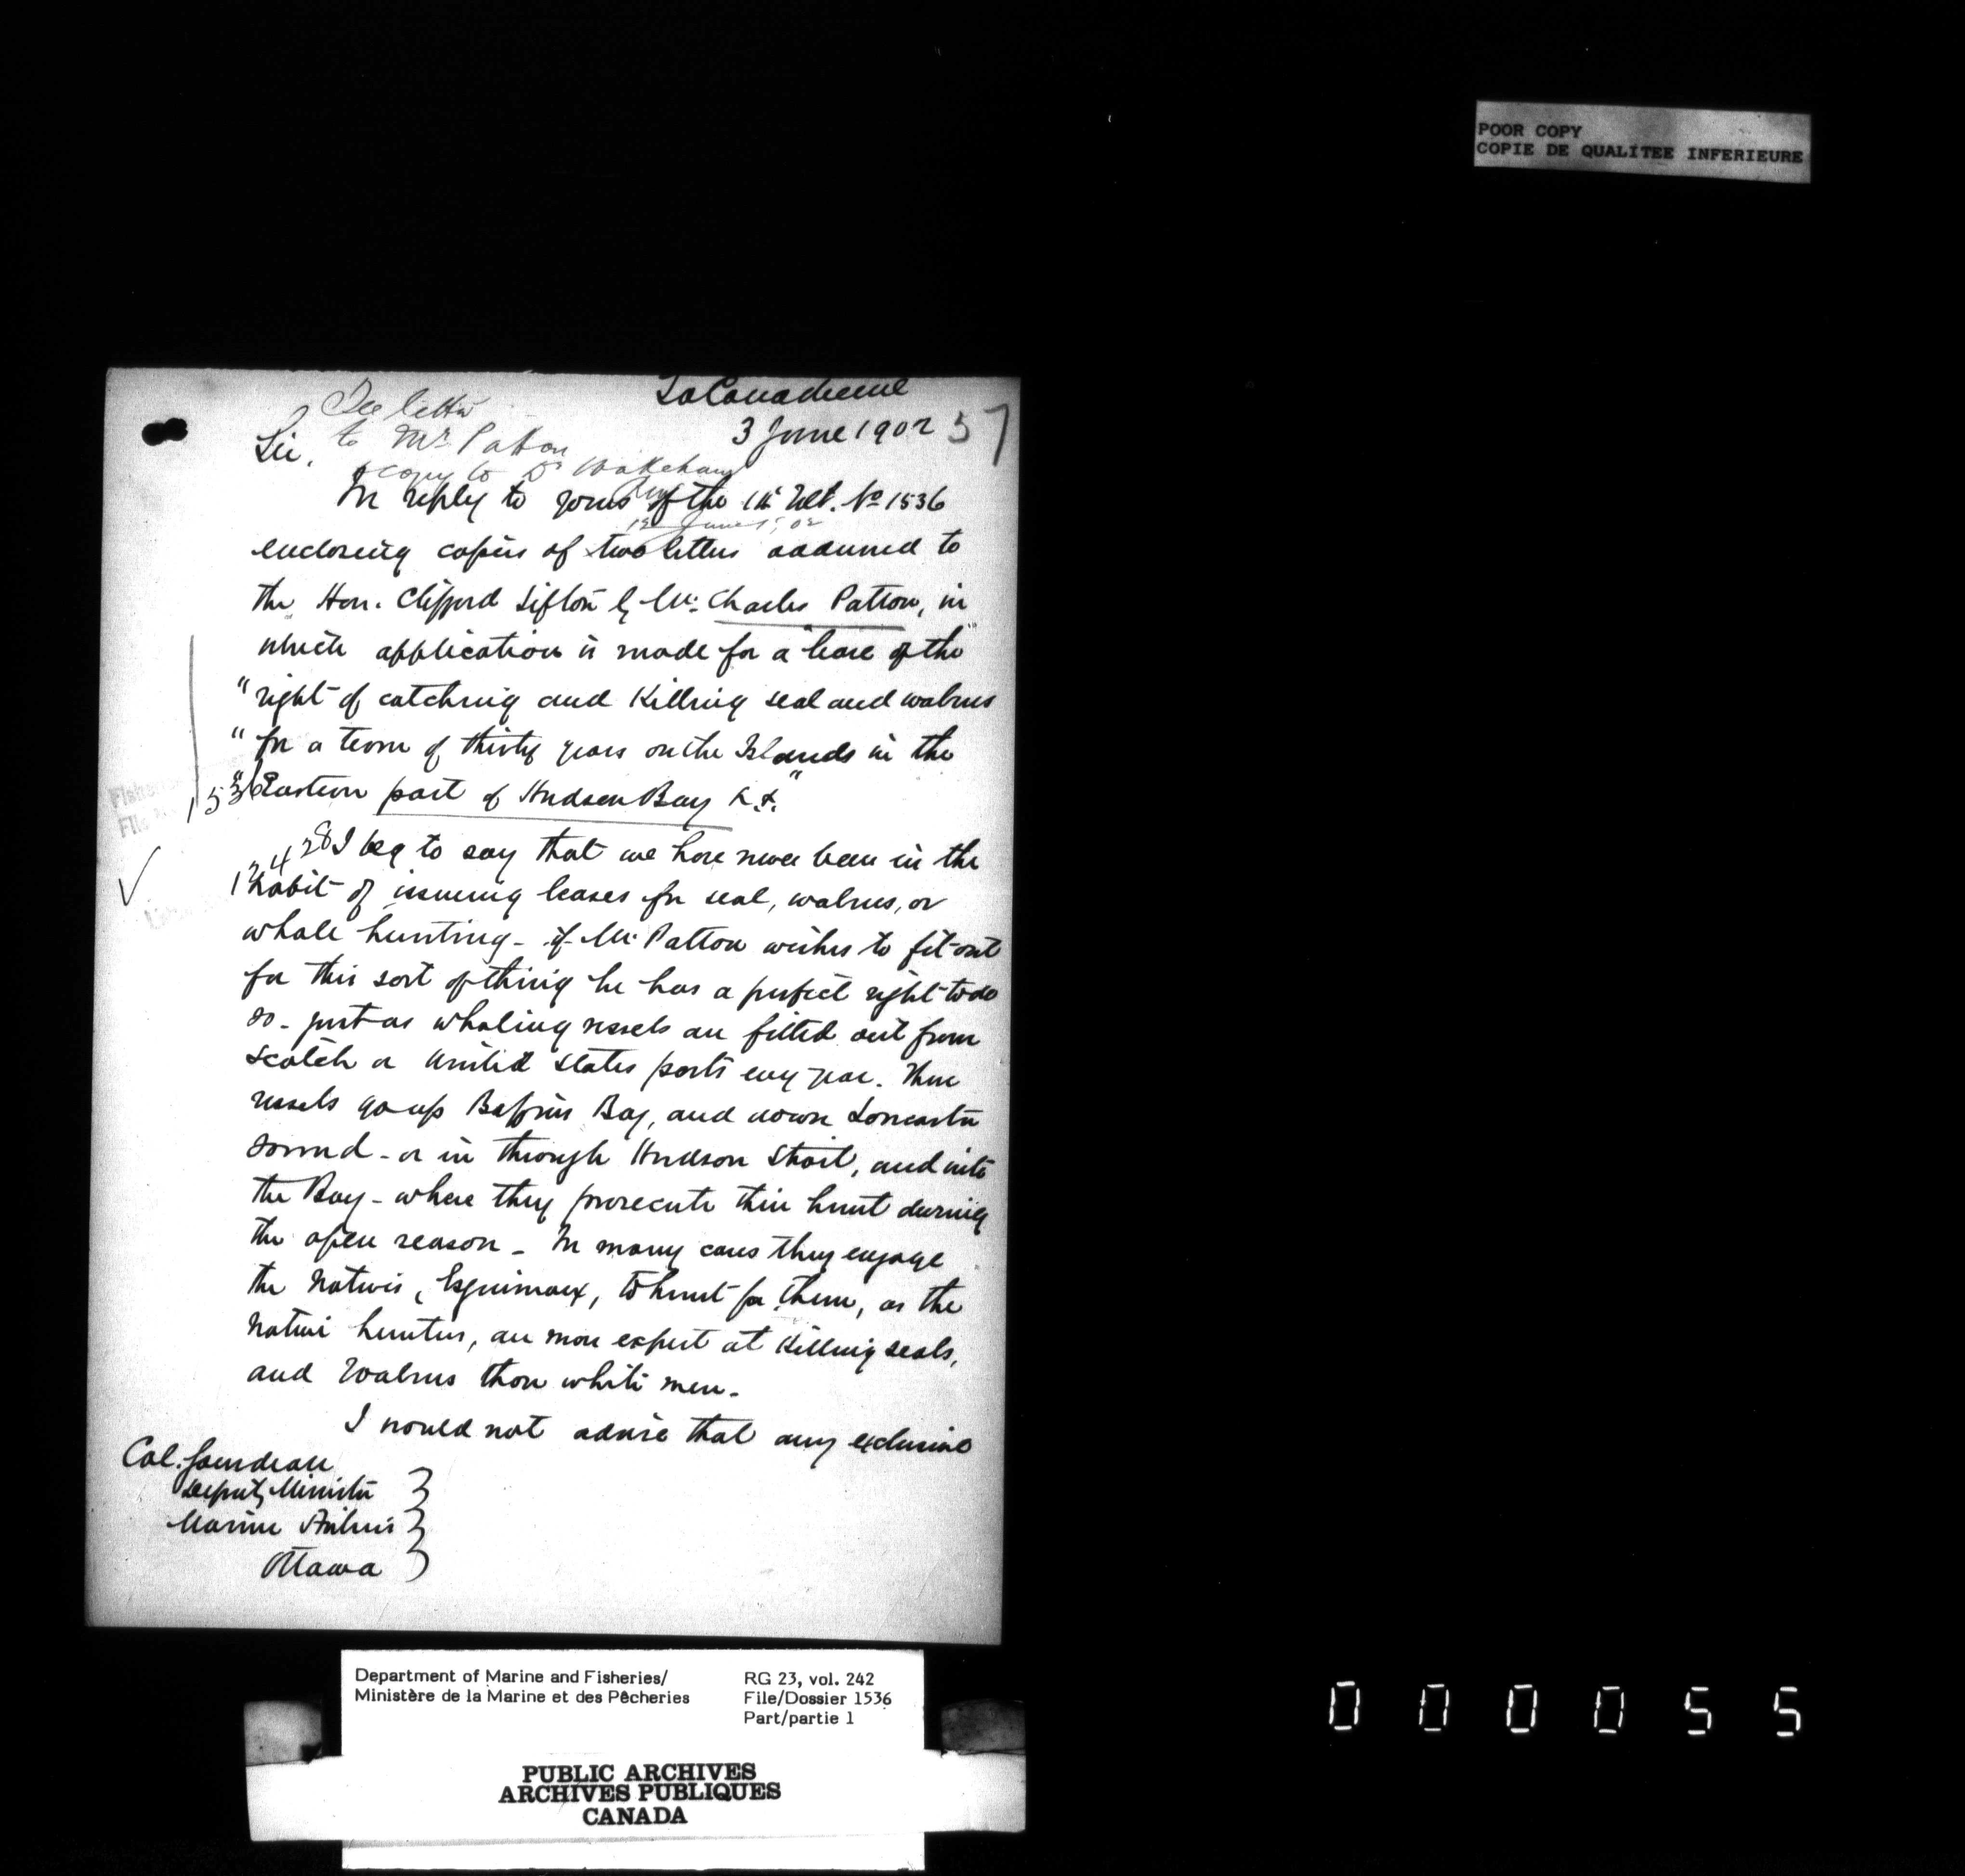 POOR COPY
COPIE DE QUALITEE INFERIEURE
La Canadienne
3 June 1902 57
See letter
to Mr Patton
& copy to Dr Wakeham
12 June '02
Sir,
In reply to yours of the Ult. No 1536
enclosing copies of two letters addressed to
the Hon. Clifford Sifton by Mr. Charles Patton, in
which application is made for a "lease of the"
"right of catching and Killing seal and walrus
"for a term of thirty years on the Islands in the
"Eastern part of Hudson Bay
153
12428
I beg to say that we have never been in the
habit of issuing leases for seal, walrus, or
whale hunting - if Mr. Patton wishes to fit-out
for this sort of thing he has a perfect right to do
so - just as whaling vessels are fitted out from
Scotch or United States ports every year. These
vessels go up Baffins Bay, and down Lancaster
Sound - or in through Hudson Strait, and into
the Bay - where they prosecute their hunt during
the open season - In many cases they engage
the Natives, Esquimaux, to hunt for them, as the
Native hunters, are more expert at Killing seals,
and Walrus than white men.
I would not advise that any exclusive
Col. Gourdeau
Deputy Minister
Marine & Fisheries
Ottawa
Department of Marine and Fisheries/
Ministère de la Marine et des Pêcheries
RG 23, vol. 242
File/Dossier 1536
Part/partie 1
PUBLIC ARCHIVES
ARCHIVES PUBLIQUES
CANADA
000055